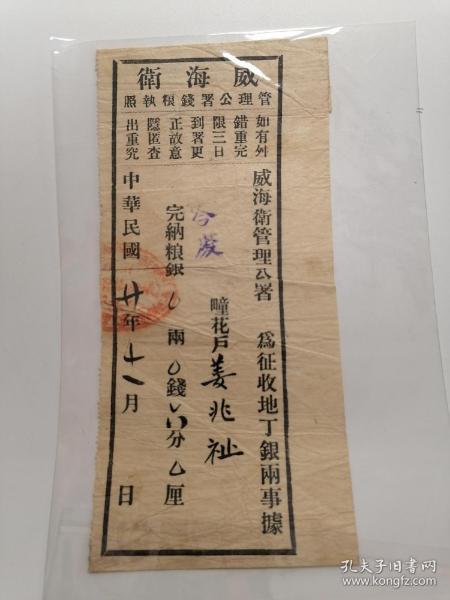 威海衛
管理公署錢粮執照
如有舛
錯重完
限三日
到署更
正故意
隱匿查
出重究
威海衛管理公署 為征收地丁銀兩事據
疃花戶姜兆祉
完納粮銀 兩 錢 分 厘
中華民國廿年十一月 日
孔夫子旧书网
www.kongfz.com